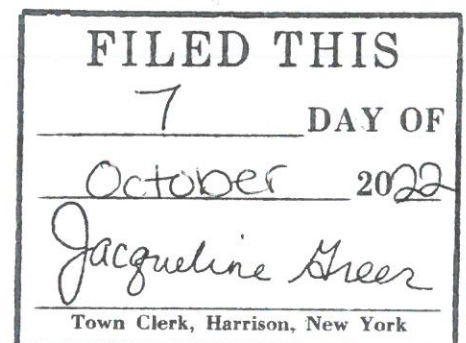 FILED THIS
7 DAY OF
October 2022
Jacqueline Greer
Town Clerk, Harrison, New York